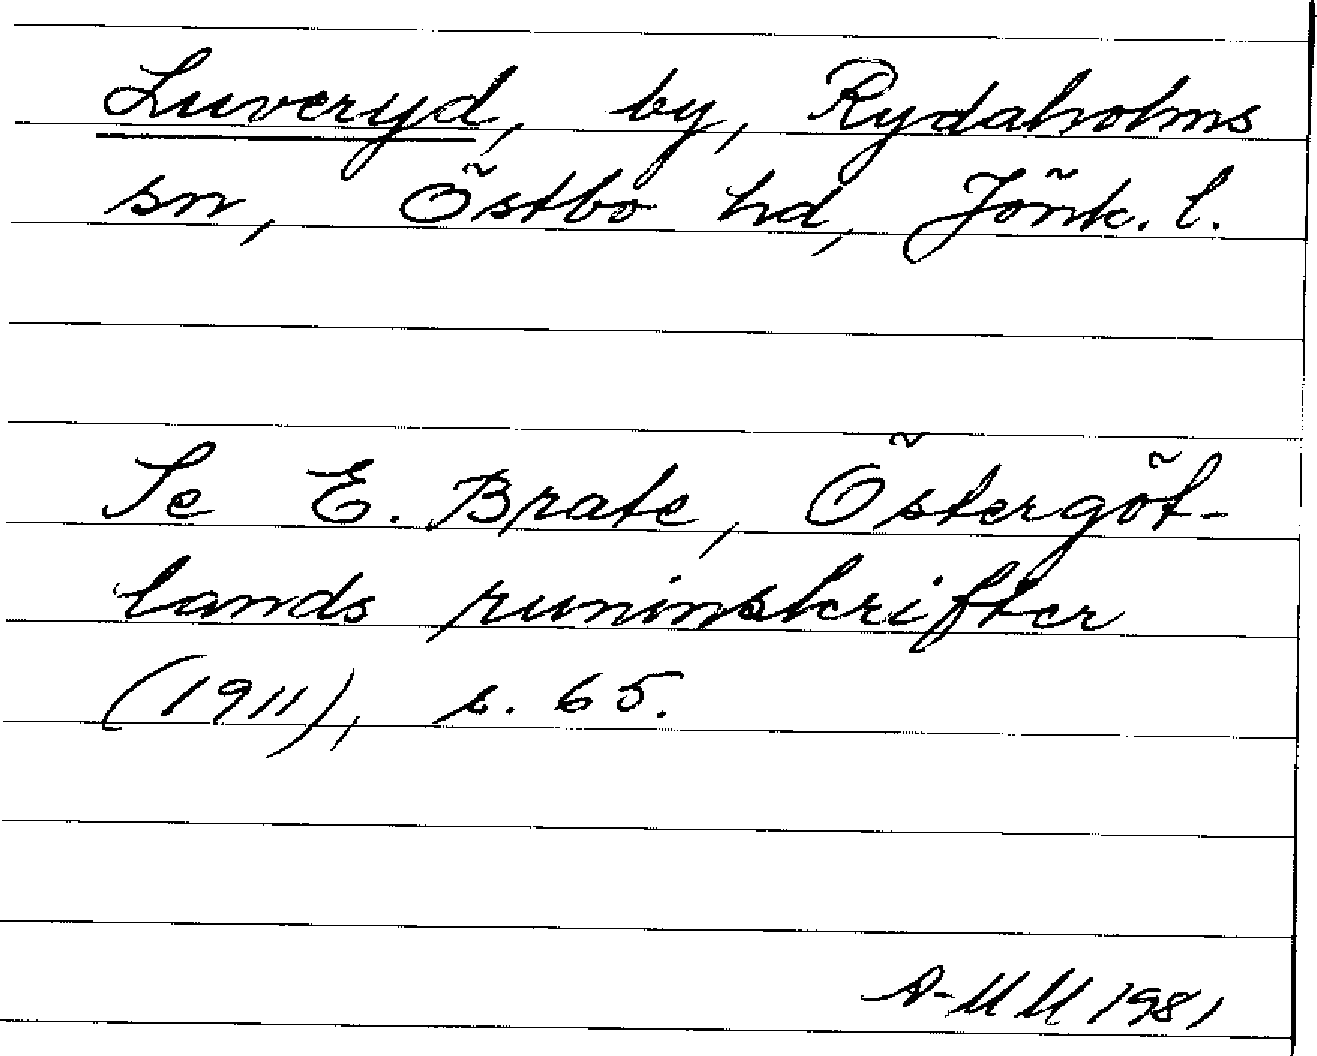 Luveryd, by, Rydaholms
sn, Östbo hd, Jönk. l.
Se E. Brate, Östergöt-
lands runinskrifter
(1911), s. 65.
A-MM 1981